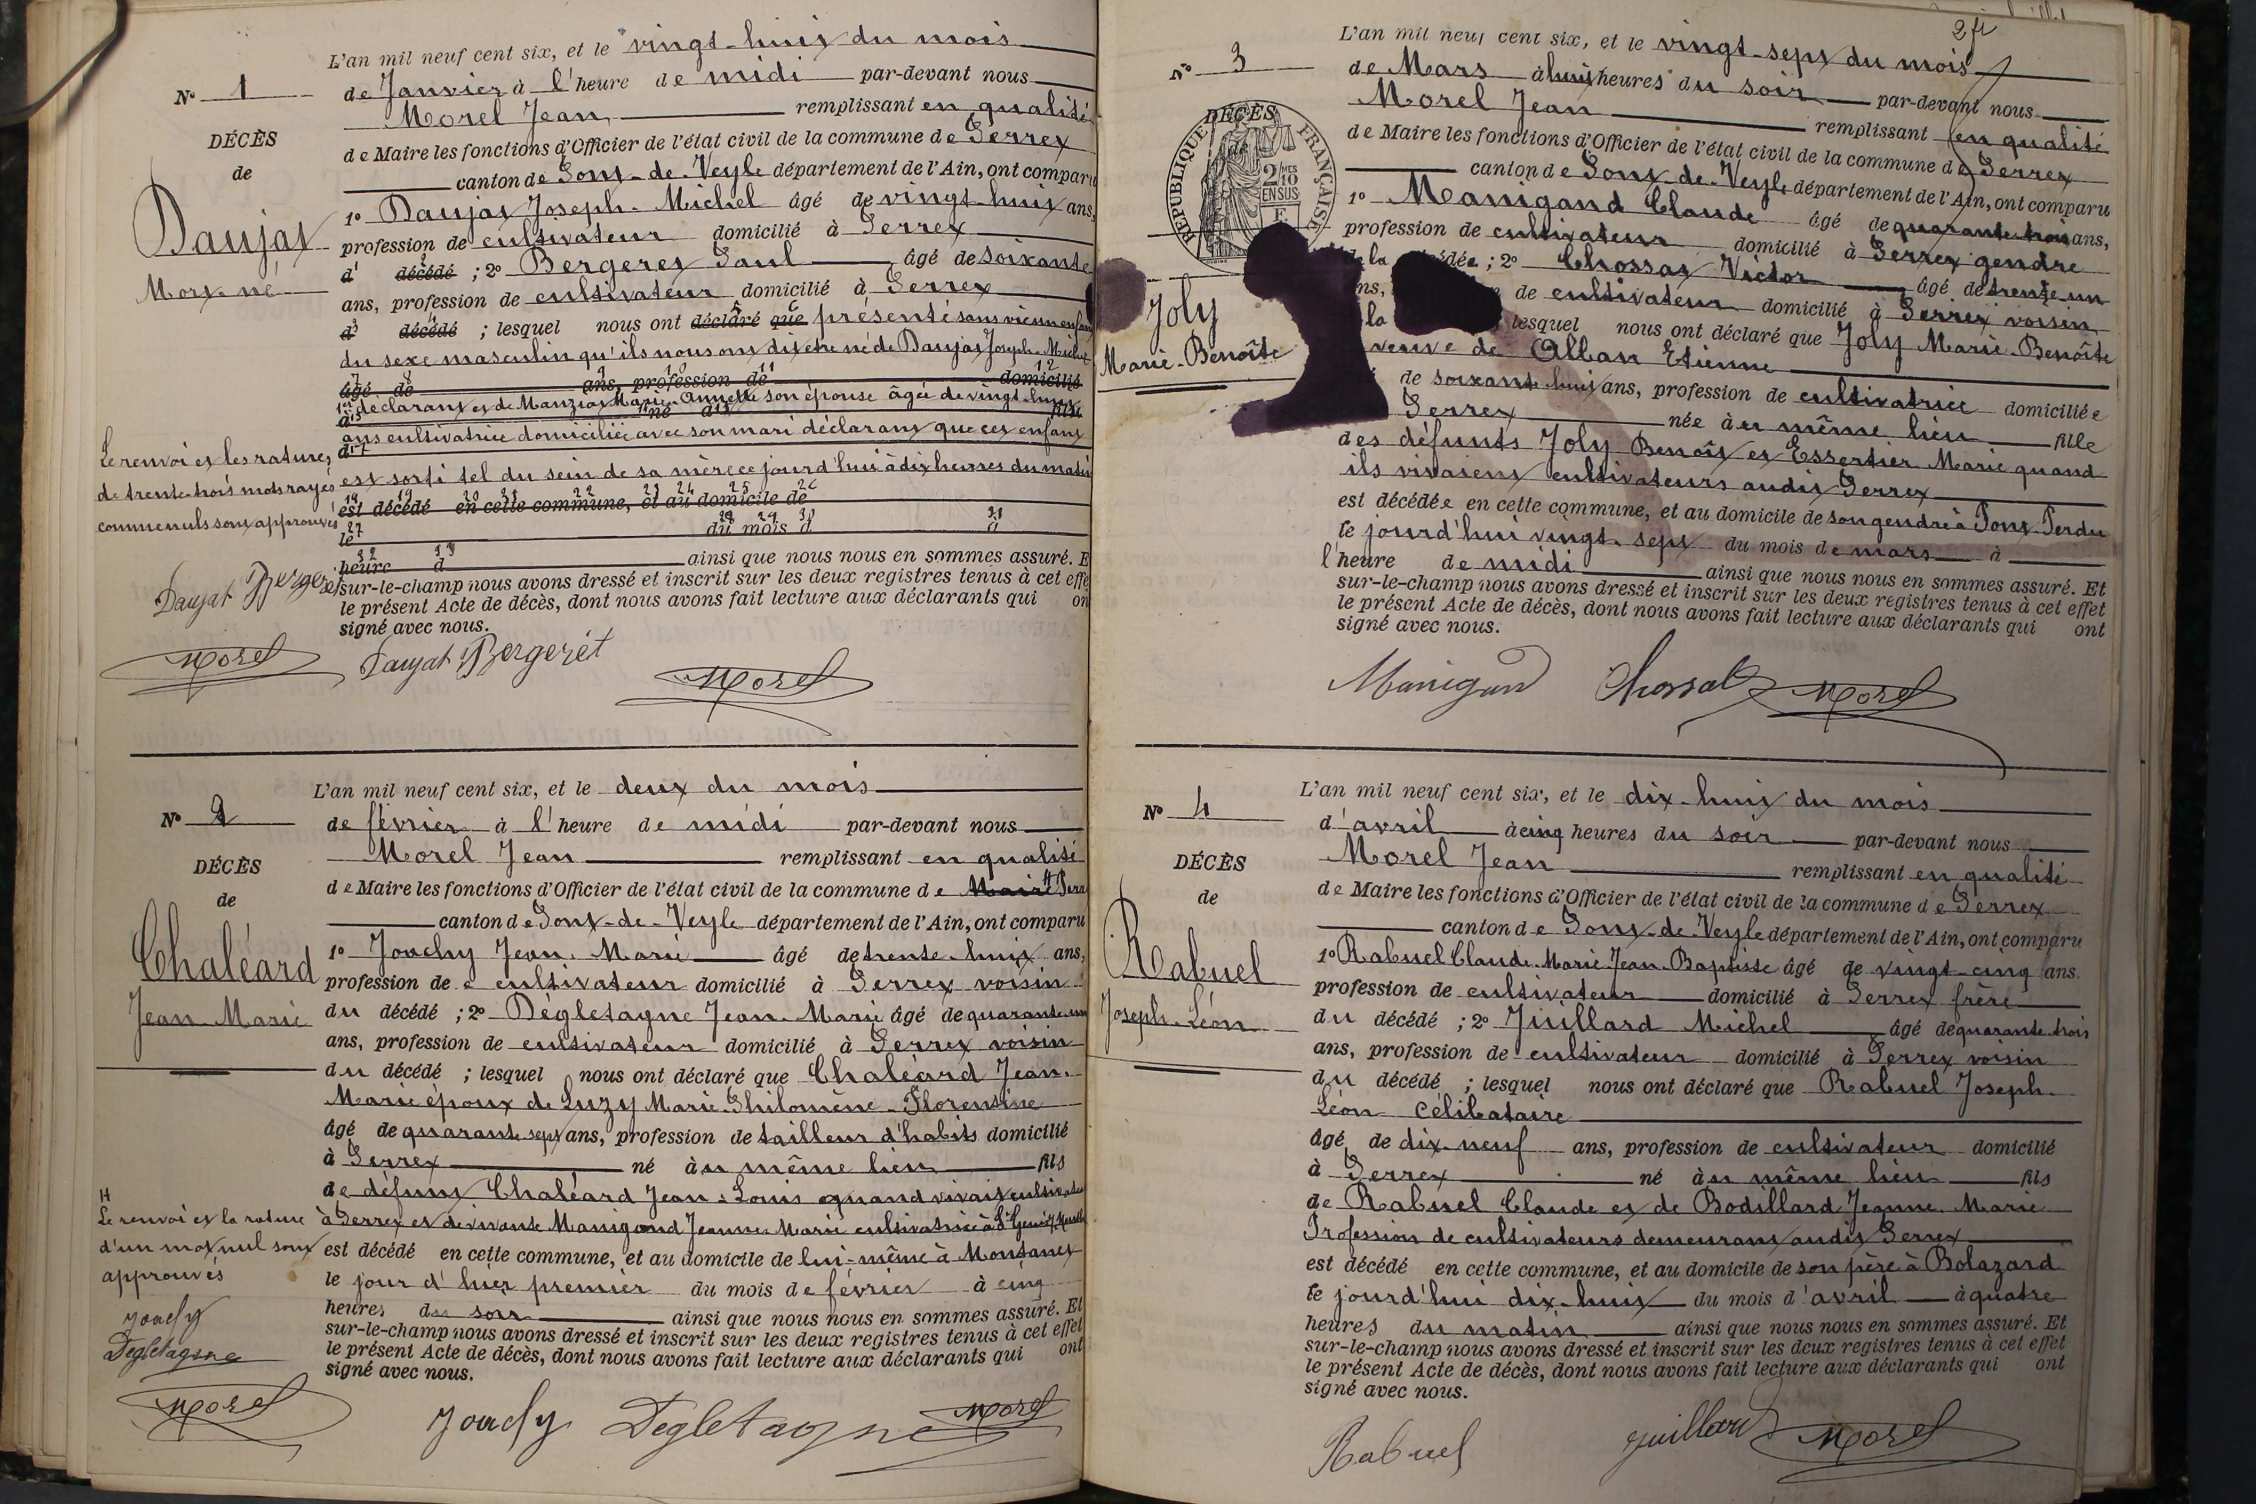 N° 1
DÉCÈS
de
Daujat
Mort-né
L'an mil neuf cent six, et le vingt-huit du mois
de Janvier à l'heure de midi par-devant nous
Morel Jean remplissant en qualité
de Maire les fonctions d'Officier de l'état civil de la commune de Perrex
canton de Pont-de-Veyle département de l'Ain, ont comparu
1° Daujat Joseph-Michel âgé de vingt-huit ans,
profession de cultivateur domicilié à Perrex
d' décédé ; 2° Bergeret Paul âgé de soixante
ans, profession de cultivateur domicilié à Perrex
d décédé ; lesquel nous ont déclaré que présenté sans vie un enfant
du sexe masculin qu'ils nous ont dit être né de Daujat Joseph-Michel
âgé de ans, profession de domicilié
déclarant et de Manziat Marie-Annette son épouse âgée de vingt-huit
d né à fils
ans cultivatrice domiciliée avec son mari déclarant que cet enfant
d
est sorti tel du sein de sa mère ce jourd'hui à dix heures du matin
est décédé en cette commune, et au domicile de
le du mois d à
heure d ainsi que nous nous en sommes assuré. E
sur-le-champ nous avons dressé et inscrit sur les deux registres tenus à cet effe
le présent Acte de décès, dont nous avons fait lecture aux déclarants qui on
signé avec nous.
Le renvoi et les ratures
de trente-trois mots rayés
comme nuls sont approuvés
Daujat Bergeret
Morel
Daujat Bergerèt
Morel
N° 2
DÉCÈS
de
Chaléard
Jean-Marie
L'an mil neuf cent six, et le deux du mois
de février à l'heure de midi par-devant nous
Morel Jean remplissant en qualité
de Maire les fonctions d'Officier de l'état civil de la commune de Mair H Perre
canton de Pont-de-Veyle département de l'Ain, ont comparu
1° Jouchy Jean-Marie âgé de trente-huit ans,
profession de cultivateur domicilié à Perrex voisin
du décédé ; 2° Dégletagne Jean-Marie âgé de quarante-un
ans, profession de cultivateur domicilié à Perrex voisin
du décédé ; lesquel nous ont déclaré que Chaléard Jean-
Marie époux de Luzy Marie-Philomène-Florentine
âgé de quarante-sept ans, profession de tailleur d'habits domicilié
à Perrex né au même lieu fils
de défunt Chaléard Jean-Louis quand vivait cultivateur
à Perrex et de vivante Manigand Jeanne-Marie cultivatrice à St Genis s/ Menthon
est décédé en cette commune, et au domicile de lui-même à Montanet
le jour d'hier premier du mois de février à cinq
heures du soir ainsi que nous nous en sommes assuré. Et
sur-le-champ nous avons dressé et inscrit sur les deux registres tenus à cet effet
le présent Acte de décès, dont nous avons fait lecture aux déclarants qui ont
signé avec nous.
H
Le renvoi et la rature
d'un mot nul sont
approuvés
Jouchy
Degletagne
Morel
Jouchy Degletagne Morel
N° 3
DÉCÈS
RÉPUBLIQUE FRANÇAISE
2/10 MES
EN SUS
Joly
Marie-Benoîte
L'an mil neuf cent six, et le vingt-sept du mois
de Mars à huit heures du soir par-devant nous
Morel Jean remplissant en qualité
de Maire les fonctions d'Officier de l'état civil de la commune de Perrex
canton de Pont-de-Veyle département de l'Ain, ont comparu
1° Manigand Claude âgé de quarante-trois ans,
profession de cultivateur domicilié à Perrex gendre
de la décédée ; 2° Chossat Victor âgé de trente-un
ans, de cultivateur domicilié à Perrex voisin
la lesquel nous ont déclaré que Joly Marie-Benoîte
veuve de Alban Etienne
de soixante-huit ans, profession de cultivatrice domiciliée
Perrex née au même lieu fille
des défunts Joly Benoît et Essertier Marie quand
ils vivaient cultivateurs audit Perrex
est décédée en cette commune, et au domicile de son gendre à Pont-Perdu
le jourd'hui vingt-sept du mois de mars à
l'heure de midi ainsi que nous nous en sommes assuré. Et
sur-le-champ nous avons dressé et inscrit sur les deux registres tenus à cet effet
le présent Acte de décès, dont nous avons fait lecture aux déclarants qui ont
signé avec nous.
Manigand Chossat Morel
N° 4
DÉCÈS
de
Rabuel
Joseph-Léon
L'an mil neuf cent six, et le dix-huit du mois
d'avril à cinq heures du soir par-devant nous
Morel Jean remplissant en qualité
de Maire les fonctions d'Officier de l'état civil de la commune de Perrex
canton de Pont-de-Veyle département de l'Ain, ont comparu
1° Rabuel Claude-Marie-Jean-Baptiste âgé de vingt-cinq ans
profession de cultivateur domicilié à Perrex frère
du décédé ; 2° Juillard Michel âgé de quarante-trois
ans, profession de cultivateur domicilié à Perrex voisin
du décédé ; lesquel nous ont déclaré que Rabuel Joseph-
Léon célibataire
âgé de dix-neuf ans, profession de cultivateur domicilié
à Perrex né au même lieu fils
de Rabuel Claude et de Bodillard Jeanne-Marie
Profession de cultivateurs demeurant audit Perrex
est décédé en cette commune, et au domicile de son père à Bolazard
le jourd'hui dix-huit du mois d'avril à quatre
heures du matin ainsi que nous nous en sommes assuré. Et
sur-le-champ nous avons dressé et inscrit sur les deux registres tenus à cet effet
le présent Acte de décès, dont nous avons fait lecture aux déclarants qui ont
signé avec nous.
Rabuel Juillard Morel